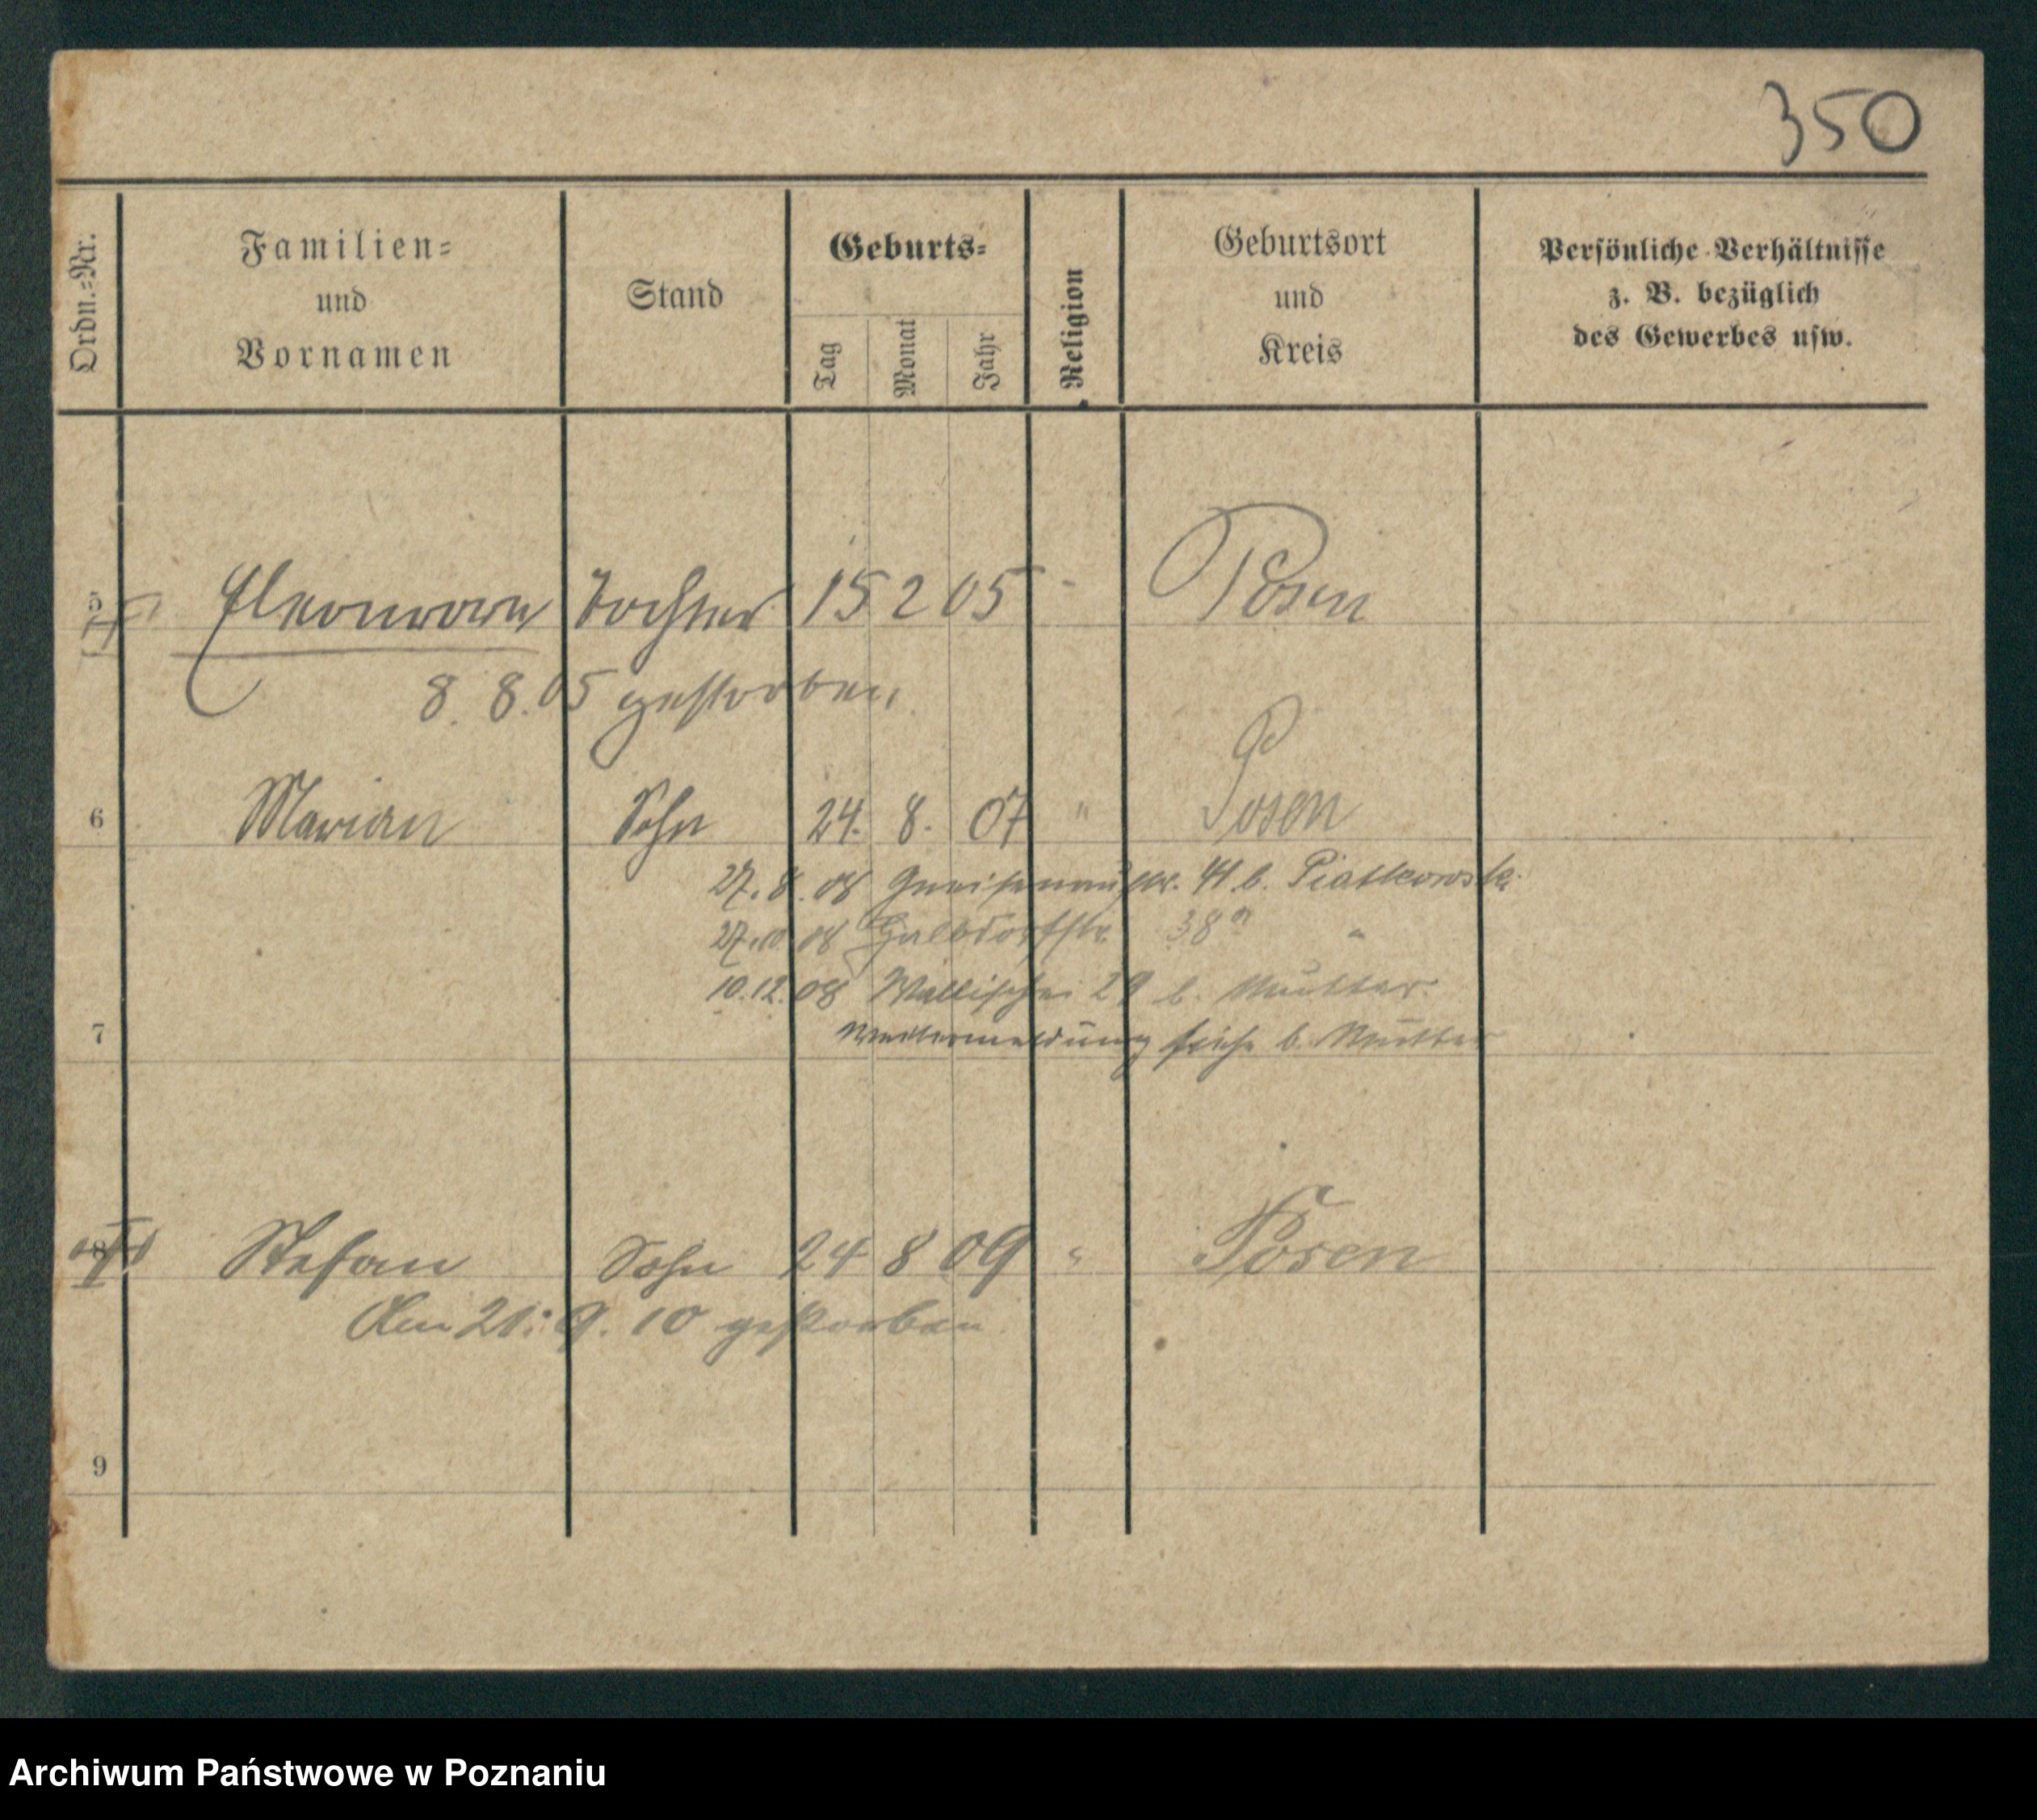 350
Ordn.-Nr.
Familien-
und
Vornamen
Stand
Geburts-
Tag
Monat
Jahr
Religion
Geburtsort
und
Kreis
Persönliche Verhältnisse
z. B. bezüglich
des Gewerbes usw.
5 Tochter 15 2 05 Posen
8. 8. 05 gestorben
6 Marian Sohn 24. 8. 07 " Posen
27. 8. 08 Gneisenaustr. 41 b. Piatkowsk.
27. 10. 08 38a "
10. 12. 08 Wallischei 29 b. Mutter
7
Weitermeldung siehe b. Mutter
8 Stefan Sohn 24 8 09 " Posen
Am 21. 9. 10 gestorben
9
Archiwum Państwowe w Poznaniu